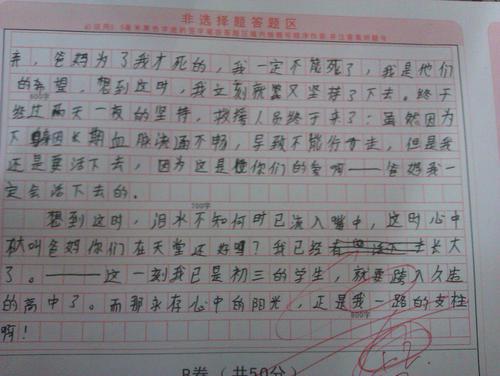 非选择题答题区
弃，爸妈为了我才死的，我一定不能死了，我是他们
的希望，想到这时，我立刻就又坚持了下去。终于
600字
经过两天一夜的坚持，救援人员终于来了：虽然因为
下长期血脉流通不畅，导致不能行走，但是我
还是要活下去，因为这是你们的爱啊——爸妈我一
定会活下去的。
700字
想到这时，泪水不知何时已流入嘴中，这时心中
大叫爸妈你们在天堂还好吗？我已经长大
了。——这一刻我已是初三的学生，就要跨入久违
的高中了。而那永存心中的阳光，正是我一路的支柱
800字
啊！
B卷（共50分）